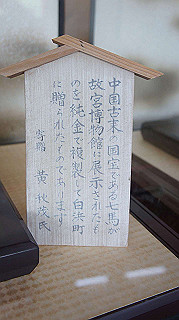 中国古来の国宝である七馬が
故宮博物館に展示されたも
のを純金で複製して白浜町
に贈られたものであります
寄贈 黄秋茂氏